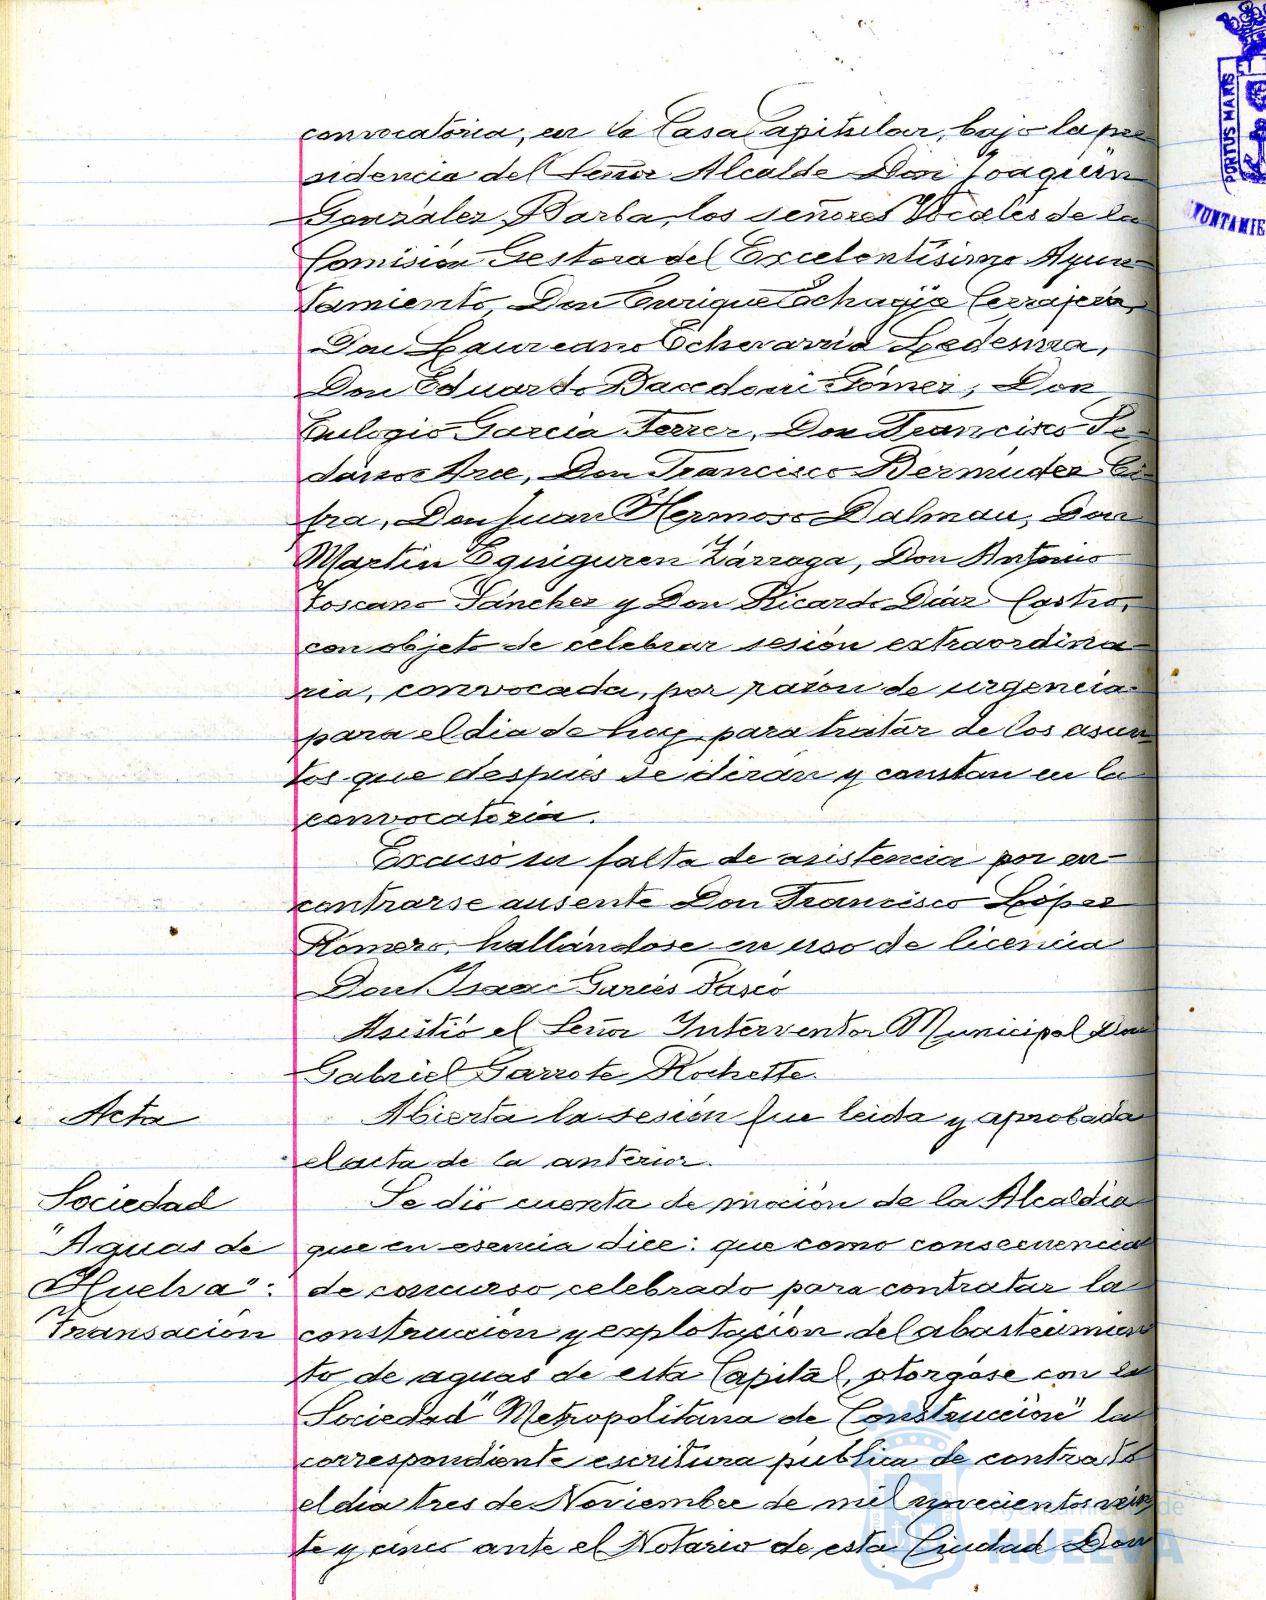 convocatoria, en la Casa Capitular, bajo la pre
sidencia del Señor Alcalde Don Joaquín
González Barba, los señores Vocales de la
Comisión Gestora del Excelentísimo Ayun-
tamiento, Don Enrique Echagüe Cerrajería,
Don Laureano Echevarría Ledesma,
Don Eduardo Bacedoni Gómez, Don
Eulogio García Ferrer, Don Francisco Se-
dano Arce, Don Francisco Bermúdez Ci-
fra, Don Juan Hermoso Dalmau, Don
Martín Eguiguren Zárraga, Don Antonio
Toscano Sánchez y Don Ricardo Díaz Castro,
con objeto de celebrar sesión extraordina-
ria, convocada, por razón de urgencia
para el día de hoy para tratar de los asun
tos que después se dirán y constan en la
convocatoria.
Excusó su falta de asistencia por en-
contrarse ausente Don Francisco López
Romero, hallándose en uso de licencia
Don Isaac Garcés Pascó
Asistió el Señor Interventor Municipal Don
Gabriel Garrote Rochette.
Acta
Abierta la sesión fue leida y aprobada
el acta de la anterior.
Sociedad
"Aguas de
Huelva":
Transación
Se dió cuenta de moción de la Alcaldía
que en esencia dice: que como consecuencia
de concurso celebrado para contratar la
construcción y explotación del abastecimien
to de aguas de esta Capital, otorgóse con la
Sociedad "Metropolitana de Construcción" la
correspondiente escritura pública de contrato
el día tres de Noviembre de mil novecientos vein
te y cinco ante el Notario de esta Ciudad Don
PORTUS MARIS
Ayuntamiento de
HUELVA